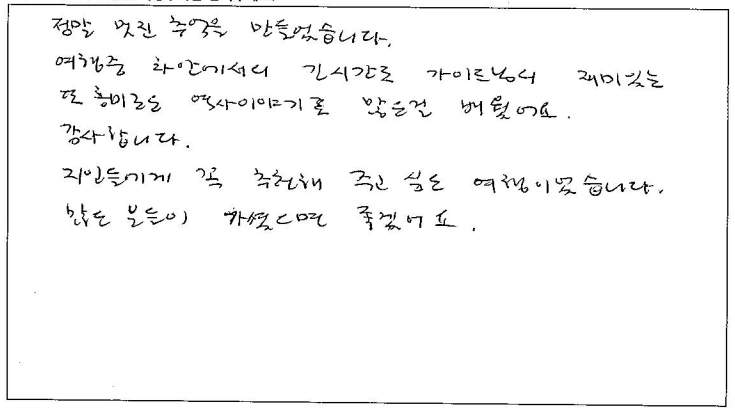 정말 멋진 추억을 만들었습니다.
여행중 차안에서의 긴시간도 가이드님의 재미있는
또 흥미로운 역사이야기로 많은걸 배웠어요.
감사합니다.
지인들에게 꼭 추천해 주고 싶은 여행이었습니다.
많은 분들이 가셨으면 좋겠어요.